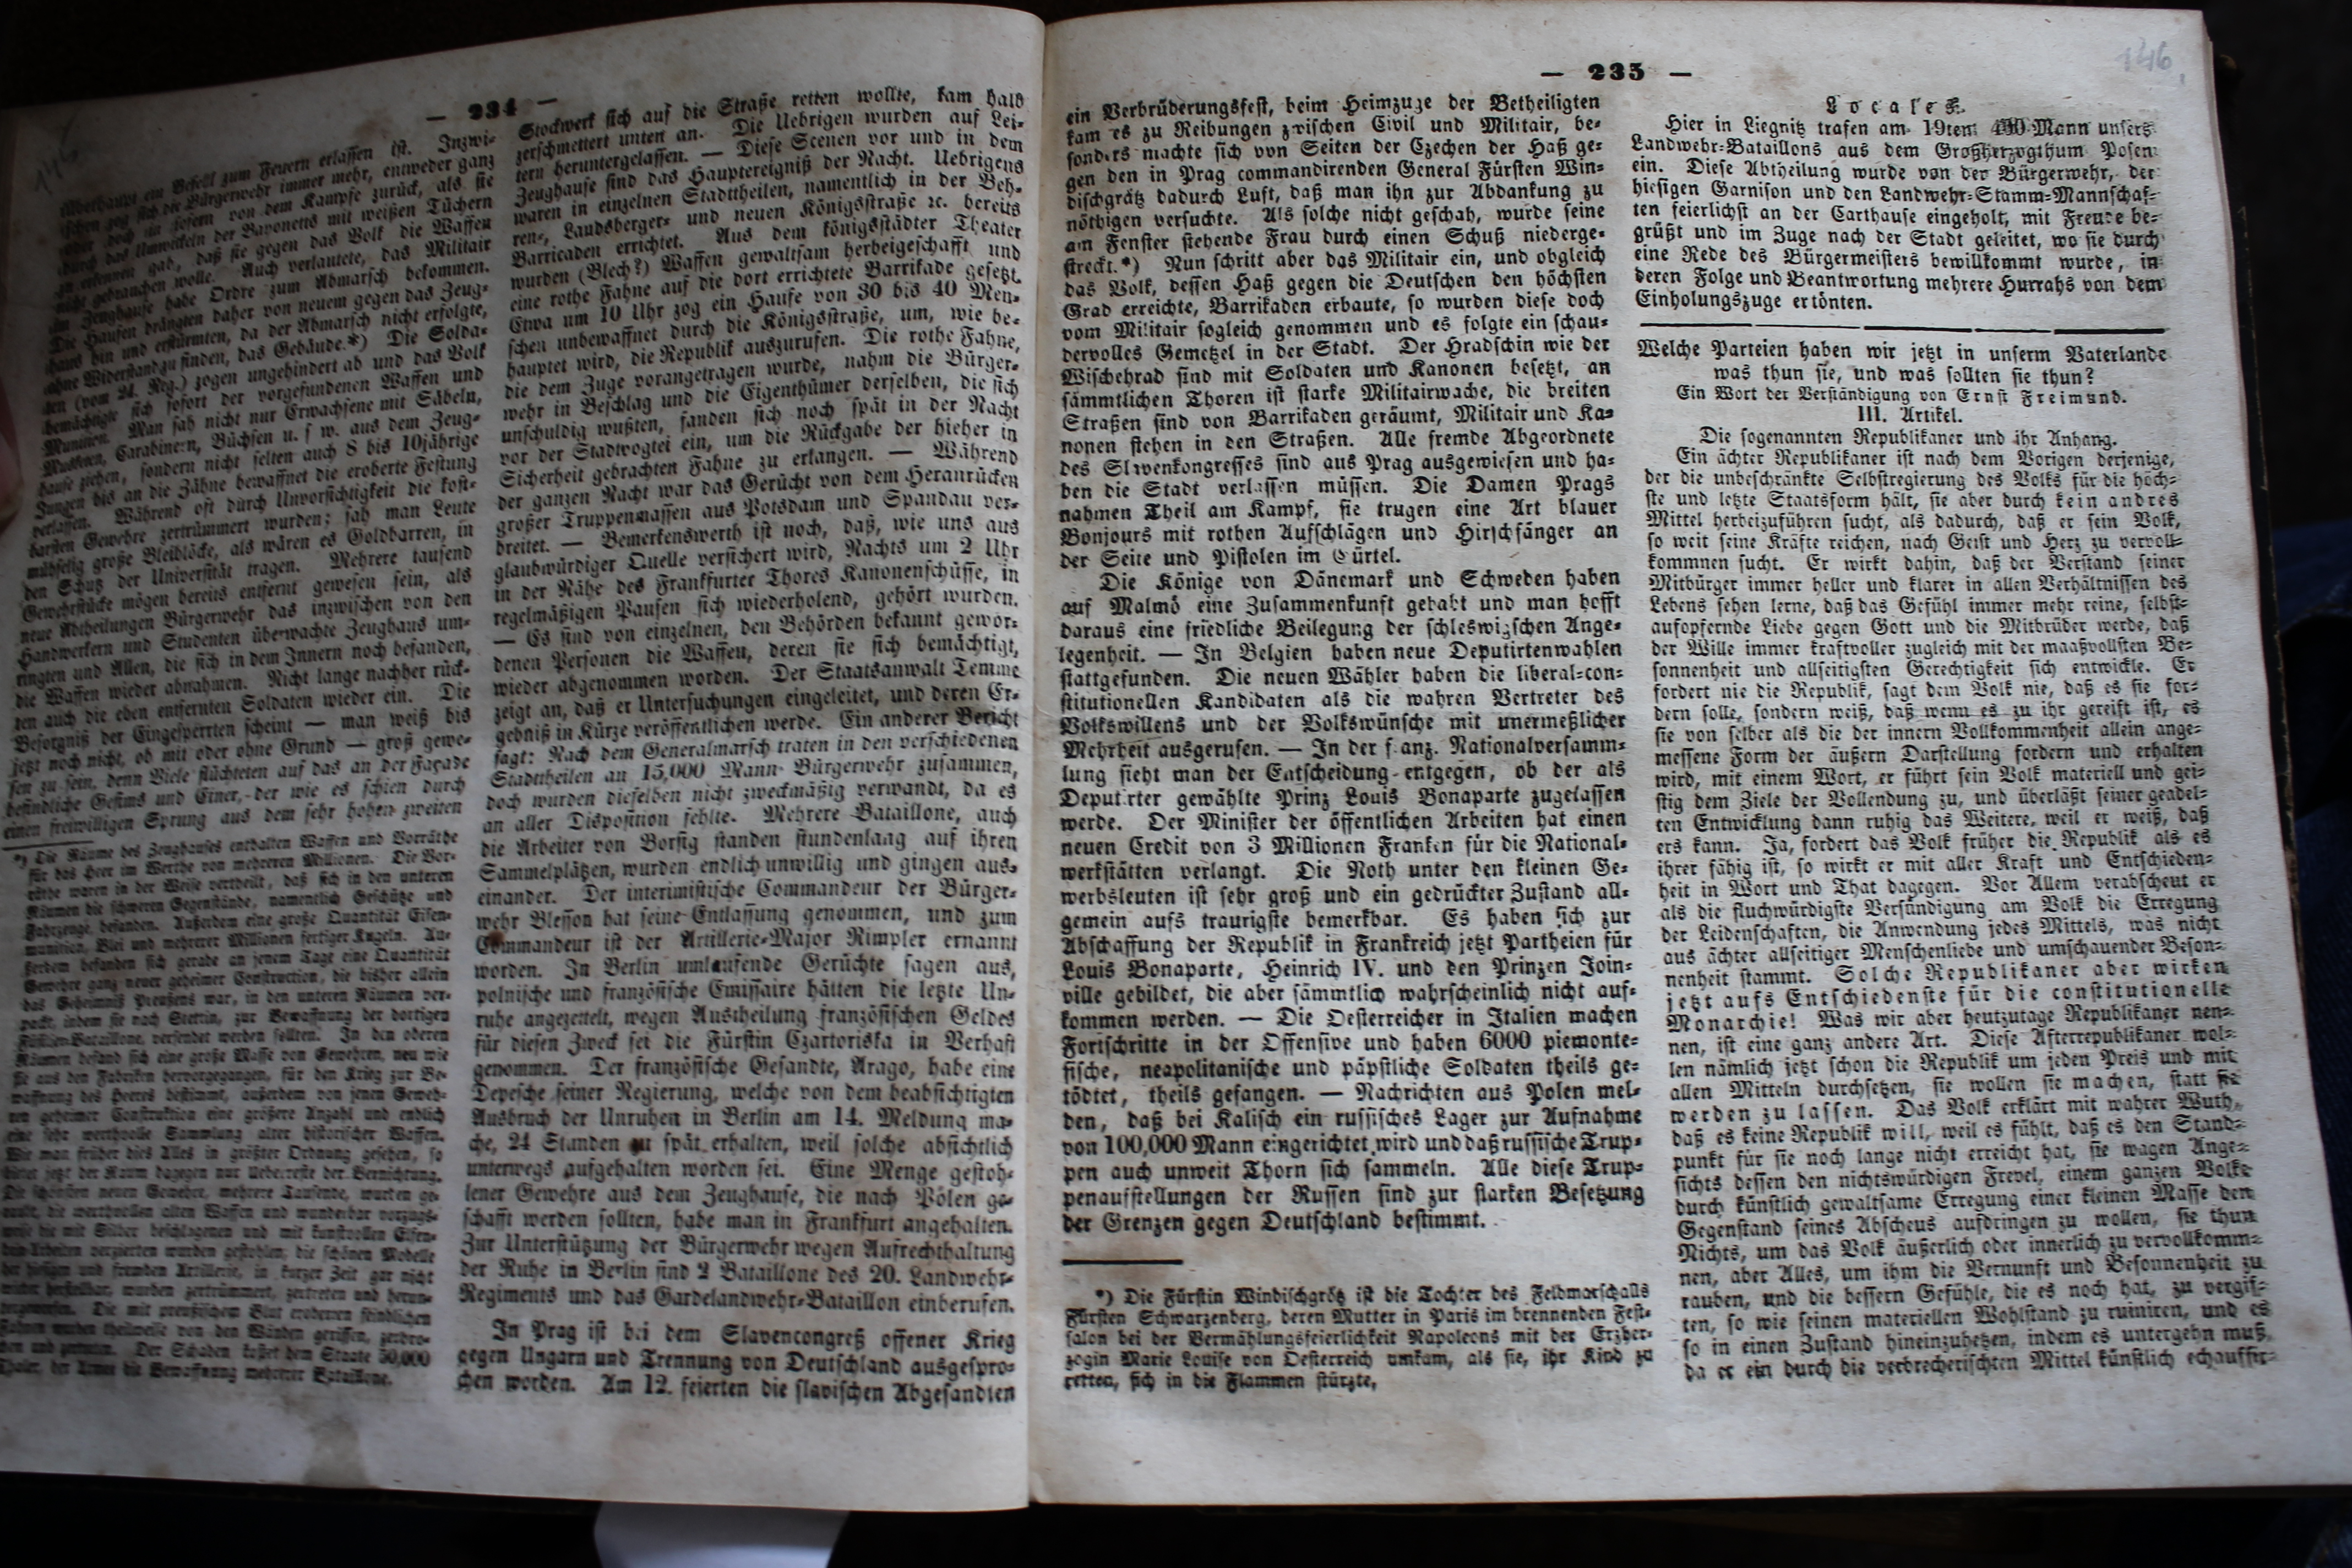 — 234 —
überhaupt ein Befehl zum Feuern erlassen ist. Inzwi-
schen zog sich die Bürgerwehr immer mehr, entweder ganz
oder doch in sofern von dem Kampfe zurück, als sie
durch das Umwickeln der Bayonetts mit weißen Tüchern
zu erkennen gab, daß sie gegen das Volk die Waffen
nicht gebrauchen wolle. Auch verlautete, das Militair
im Zeughause habe Ordre zum Abmarsch bekommen.
Die Haufen drängten daher von neuem gegen das Zeug-
haus hin und erstürmten, da der Abmarsch nicht erfolgte,
ohne Widerstand zu finden, das Gebäude.*) Die Solda-
ten (vom 24. Reg.) zogen ungehindert ab und das Volk
bemächtigte sich sofort der vorgefundenen Waffen und
Munition. Man sah nicht nur Erwachsene mit Säbeln,
Musketen, Carabinern, Büchsen u. s w. aus dem Zeug-
hause ziehen, sondern nicht selten auch 8 bis 10jährige
Jungen bis an die Zähne bewaffnet die eroberte Festung
verlassen. Während oft durch Unvorsichtigkeit die kost-
barsten Gewehre zertrümmert wurden; sah man Leute
mühselig große Bleiblöcke, als wären es Goldbarren, in
den Schutz der Universität tragen. Mehrere tausend
Gewehrstücke mögen bereits entfernt gewesen sein, als
neue Abtheilungen Bürgerwehr das inzwischen von den
Handwerkern und Studenten überwachte Zeughaus um-
ringten und Allen, die sich in dem Innern noch befanden,
die Waffen wieder abnahmen. Nicht lange nachher rück-
ten auch die eben entfernten Soldaten wieder ein. Die
Besorgniß der Eingesperrten scheint — man weiß bis
jetzt noch nicht, ob mit oder ohne Grund — groß gewe-
sen zu sein, denn Viele flüchteten auf das an der Façade
befindliche Gesims und Einer, der wie es schien durch
einen freiwilligen Sprung aus dem sehr hohen zweiten
*) Die Räume des Zeughauses enthalten Waffen und Vorräthe
für das Heer im Werthe von mehreren Millionen. Die Vor-
räthe waren in der Weise vertheilt, daß sich in den unteren
Räumen die schweren Gegenstände, namentlich Geschütze und
Fahrzeuge, befanden. Außerdem eine große Quantität Eisen-
munition, Blei und mehrerer Millionen fertiger Kugeln. Au-
ßerdem befanden sich gerade an jenem Tage eine Quantität
Gewehre ganz neuer geheimer Construction, die bisher allein
das Geheimniß Preußens war, in den unteren Räumen ver-
packt, indem sie nach Stettin, zur Bewaffnung der dortigen
Füsilier-Bataillone, versendet werden sollten. In den oberen
Räumen befand sich eine große Masse von Gewehren, neu wie
sie aus den Fabriken hervorgegangen, für den Krieg zur Be-
waffnung des Heeres bestimmt, außerdem von jenen Geweh-
ren geheimer Construktion eine größere Anzahl und endlich
eine sehr werthvolle Sammlung alter historischer Waffen.
Wie man früher dies Alles in größter Ordnung gesehen, so
bietet jetzt der Raum dagegen nur Ueberreste der Vernichtung.
Die schönsten neuen Gewehre, mehrere Tausende, wurden ge-
raubt, die werthvollen alten Waffen und wunderbar vorzugs-
weise die mit Silber beschlagenen und mit kunstvollen Eisen-
bein-Arbeiten verzierten wurden gestohlen, die schönen Modelle
der hiesigen und fremden Artillerie, in kurzer Zeit gar nicht
wieder herstellbar, wurden zertrümmert, zertreten und herun-
tergeworfen. Die mit preußischem Blut eroberten feindlichen
Fahnen wurden theilweise von den Wänden gerissen, zerbro-
chen und zertreten. Der Schaden kostet dem Staate 50,000
Thaler, der Armee die Bewaffnung mehrerer Bataillone.
Stockwerk sich auf die Straße retten wollte, kam halb
zerschmettert unten an. Die Uebrigen wurden auf Lei-
tern heruntergelassen. — Diese Scenen vor und in dem
Zeughause sind das Hauptereigniß der Nacht. Uebrigens
waren in einzelnen Stadttheilen, namentlich in der Beh-
ren-, Landsberger- und neuen Königsstraße ꝛc. bereits
Barricaden errichtet. Aus dem königsstädter Theater
wurden (Blech?) Waffen gewaltsam herbeigeschafft und
eine rothe Fahne auf die dort errichtete Barrikade gesetzt.
Etwa um 10 Uhr zog ein Haufe von 30 bis 40 Men-
schen unbewaffnet durch die Königsstraße, um, wie be-
hauptet wird, die Republik auszurufen. Die rothe Fahne,
die dem Zuge vorangetragen wurde, nahm die Bürger-
wehr in Beschlag und die Eigenthümer derselben, die sich
unschuldig wußten, fanden sich noch spät in der Nacht
vor der Stadtvogtei ein, um die Rückgabe der hieher in
Sicherheit gebrachten Fahne zu erlangen. — Während
der ganzen Nacht war das Gerücht von dem Heranrücken
großer Truppenmassen aus Potsdam und Spandau ver-
breitet. — Bemerkenswerth ist noch, daß, wie uns aus
glaubwürdiger Quelle versichert wird, Nachts um 2 Uhr
in der Nähe des Frankfurter Thores Kanonenschüsse, in
regelmäßigen Pausen sich wiederholend, gehört wurden.
— Es sind von einzelnen, den Behörden bekannt gewor-
denen Personen die Waffen, deren sie sich bemächtigt,
wieder abgenommen worden. Der Staatsanwalt Temme
zeigt an, daß er Untersuchungen eingeleitet, und deren Er-
gebniß in Kürze veröffentlichen werde. Ein anderer Bericht
sagt: Nach dem Generalmarsch traten in den verschiedenen
Stadttheilen an 15,000 Mann Bürgerwehr zusammen,
doch wurden dieselben nicht zweckmäßig verwandt, da es
an aller Disposition fehlte. Mehrere Bataillone, auch
die Arbeiter von Borsig standen stundenlaag auf ihren
Sammelplätzen, wurden endlich unwillig und gingen aus-
einander. Der interimistische Commandeur der Bürger-
wehr Blesson hat seine Entlassung genommen, und zum
Commandeur ist der Artillerie-Major Rimpler ernannt
worden. In Berlin umlaufende Gerüchte sagen aus,
polnische und französische Emissaire hätten die letzte Un-
ruhe angezettelt, wegen Austheilung französischen Geldes
für diesen Zweck sei die Fürstin Czartoriska in Verhaft
genommen. Der französische Gesandte, Arago, habe eine
Depesche seiner Regierung, welche von dem beabsichtigten
Ausbruch der Unruhen in Berlin am 14. Meldung ma-
che, 24 Standen zu spät erhalten, weil solche absichtlich
unterwegs aufgehalten worden sei. Eine Menge gestoh-
lener Gewehre aus dem Zeughause, die nach Polen ge-
schafft werden sollten, habe man in Frankfurt angehalten.
Zur Unterstützung der Bürgerwehr wegen Aufrechthaltung
der Ruhe in Berlin sind 2 Bataillone des 20. Landwehr-
Regiments und das Gardelandwehr-Bataillon einberufen.
In Prag ist bei dem Slavencongreß offener Krieg
gegen Ungarn und Trennung von Deutschland ausgespro-
chen worden. Am 12. feierten die slavischen Abgesandten
— 235 —
146
ein Verbrüderungsfest, beim Heimzuge der Betheiligten
kam es zu Reibungen zwischen Civil und Militair, be-
sonders machte sich von Seiten der Czechen der Haß ge-
gen den in Prag commandirenden General Fürsten Win-
dischgrätz dadurch Luft, daß man ihn zur Abdankung zu
nöthigen versuchte. Als solche nicht geschah, wurde seine
am Fenster stehende Frau durch einen Schuß niederge-
streckt.*) Nun schritt aber das Militair ein, und obgleich
das Volk, dessen Haß gegen die Deutschen den höchsten
Grad erreichte, Barrikaden erbaute, so wurden diese doch
vom Militair sogleich genommen und es folgte ein schau-
dervolles Gemetzel in der Stadt. Der Hradschin wie der
Wischehrad sind mit Soldaten und Kanonen besetzt, an
sämmtlichen Thoren ist starke Militairwache, die breiten
Straßen sind von Barrikaden geräumt, Militair und Ka-
nonen stehen in den Straßen. Alle fremde Abgeordnete
des Slavenkongresses sind aus Prag ausgewiesen und ha-
ben die Stadt verlassen müssen. Die Damen Prags
nahmen Theil am Kampf, sie trugen eine Art blauer
Bonjours mit rothen Aufschlägen und Hirschfänger an
der Seite und Pistolen im Gürtel.
Die Könige von Dänemark und Schweden haben
auf Malmö eine Zusammenkunft gehabt und man hofft
daraus eine friedliche Beilegung der schleswigschen Ange-
legenheit. — In Belgien haben neue Deputirtenwahlen
stattgefunden. Die neuen Wähler haben die liberal-con-
stitutionellen Kandidaten als die wahren Vertreter des
Volkswillens und der Volkswünsche mit unermeßlicher
Mehrheit ausgerufen. — In der franz. Nationalversamm-
lung sieht man der Entscheidung entgegen, ob der als
Deputirter gewählte Prinz Louis Bonaparte zugelassen
werde. Der Minister der öffentlichen Arbeiten hat einen
neuen Credit von 3 Millionen Franken für die National-
werkstätten verlangt. Die Noth unter den kleinen Ge-
werbsleuten ist sehr groß und ein gedrückter Zustand all-
gemein aufs traurigste bemerkbar. Es haben sich zur
Abschaffung der Republik in Frankreich jetzt Partheien für
Louis Bonaparte, Heinrich IV. und den Prinzen Join-
ville gebildet, die aber sämmtlich wahrscheinlich nicht auf-
kommen werden. — Die Oesterreicher in Italien machen
Fortschritte in der Offensive und haben 6000 piemonte-
sische, neapolitanische und päpstliche Soldaten theils ge-
tödtet, theils gefangen. — Nachrichten aus Polen mel-
den, daß bei Kalisch ein russisches Lager zur Aufnahme
von 100,000 Mann eingerichtet wird und daß russische Trup-
pen auch unweit Thorn sich sammeln. Alle diese Trup-
penaufstellungen der Russen sind zur starken Besetzung
der Grenzen gegen Deutschland bestimmt.
*) Die Fürstin Windischgrätz ist die Tochter des Feldmarschalls
Fürsten Schwarzenberg, deren Mutter in Paris im brennenden Fest-
salon bei der Vermählungsfeierlichkeit Napoleons mit der Erzher-
zogin Marie Louise von Oesterreich umkam, als sie, ihr Kind zu
retten, sich in die Flammen stürzte,
Locales.
Hier in Liegnitz trafen am 19ten Mann unsers
Landwehr-Bataillons aus dem Großherzogthum Posen
ein. Diese Abtheilung wurde von der Bürgerwehr, der
hiesigen Garnison und den Landwehr-Stamm-Mannschaf-
ten feierlichst an der Carthause eingeholt, mit Freude be-
grüßt und im Zuge nach der Stadt geleitet, wo sie durch
eine Rede des Bürgermeisters bewillkommt wurde, in
deren Folge und Beantwortung mehrere Hurrahs von dem
Einholungszuge ertönten.
Welche Parteien haben wir jetzt in unserm Vaterlande
was thun sie, und was sollten sie thun?
Ein Wort der Verständigung von Ernst Freimund.
III. Artikel.
Die sogenannten Republikaner und ihr Anhang.
Ein ächter Republikaner ist nach dem Vorigen derjenige,
der die unbeschränkte Selbstregierung des Volks für die höch-
ste und letzte Staatsform hält, sie aber durch kein andres
Mittel herbeizuführen sucht, als dadurch, daß er sein Volk,
so weit seine Kräfte reichen, nach Geist und Herz zu vervoll-
kommnen sucht. Er wirkt dahin, daß der Verstand seiner
Mitbürger immer heller und klarer in allen Verhältnissen des
Lebens sehen lerne, daß das Gefühl immer mehr reine, selbst-
aufopfernde Liebe gegen Gott und die Mitbrüder werde, daß
der Wille immer kraftvoller zugleich mit der maaßvollsten Be-
sonnenheit und allseitigsten Gerechtigkeit sich entwickle. Er
fordert nie die Republik, sagt dem Volk nie, daß es sie for-
dern solle, sondern weiß, daß wenn es zu ihr gereift ist, es
sie von selber als die der innern Vollkommenheit allein ange-
messene Form der äußern Darstellung fordern und erhalten
wird, mit einem Wort, er führt sein Volk materiell und gei-
stig dem Ziele der Vollendung zu, und überläßt seiner geadel-
ten Entwicklung dann ruhig das Weitere, weil er weiß, daß
ers kann. Ja, fordert das Volk früher die Republik als es
ihrer fähig ist, so wirkt er mit aller Kraft und Entschieden-
heit in Wort und That dagegen. Vor Allem verabscheut er
als die fluchwürdigste Versündigung am Volk die Erregung
der Leidenschaften, die Anwendung jedes Mittels, was nicht
aus ächter allseitiger Menschenliebe und umschauender Beson-
nenheit stammt. Solche Republikaner aber wirken
jetzt aufs Entschiedenste für die constitutionelle
Monarchie! Was wir aber heutzutage Republikaner nen-
nen, ist eine ganz andere Art. Diese Afterrepublikaner wol-
len nämlich jetzt schon die Republik um jeden Preis und mit
allen Mitteln durchsetzen, sie wollen sie machen, statt sie
werden zu lassen. Das Volk erklärt mit wahrer Wuth,
daß es keine Republik will, weil es fühlt, daß es den Stand-
punkt für sie noch lange nicht erreicht hat, sie wagen Ange-
sichts dessen den nichtswürdigen Frevel, einem ganzen Volke
durch künstlich gewaltsame Erregung einer kleinen Masse den
Gegenstand seines Abscheus aufdringen zu wollen, sie thun
Nichts, um das Volk äußerlich oder innerlich zu vervollkomm-
nen, aber Alles, um ihm die Vernunft und Besonnenheit zu
rauben, und die bessern Gefühle, die es noch hat, zu vergif-
ten, so wie seinen materiellen Wohlstand zu ruiniren, und es
so in einen Zustand hineinzuhetzen, indem es untergehn muß,
da er ein durch die verbrecherischten Mittel künstlich echauffir-